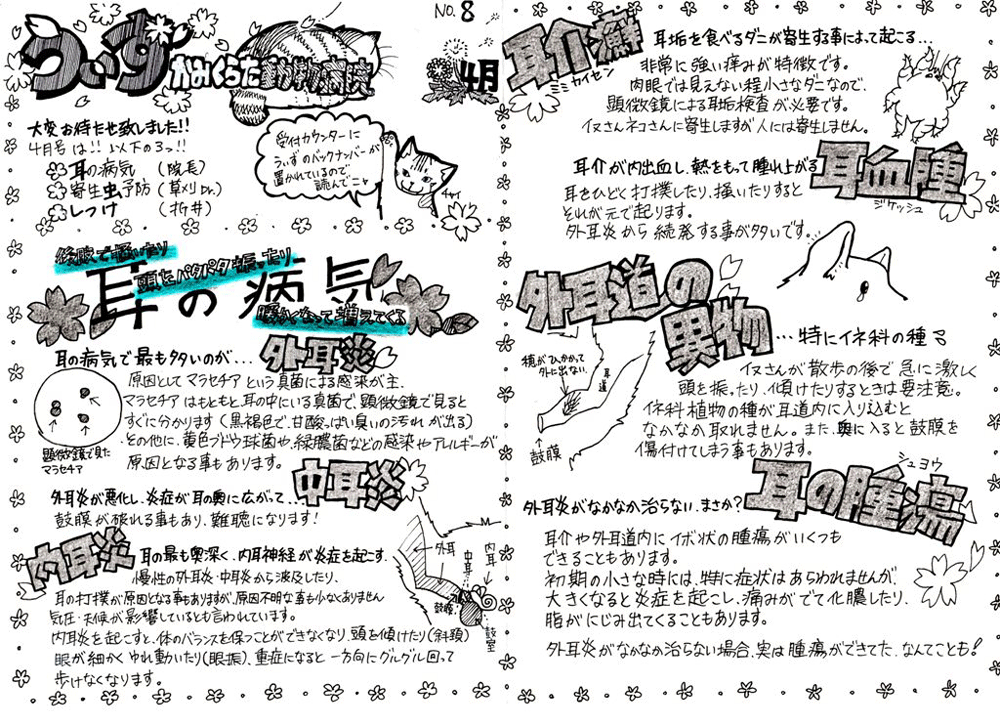 うぃず
かみくらた動物病院
NO.8
4月
大変お待たせ致しました!!
4月号は!!以下の3つ!!
耳の病気 (院長)
寄生虫予防 (草刈Dr.)
しつけ (折井)
受付カウンターに
うぃずのバックナンバーが
置かれているので、
読んでニャ
チャイ
後肢で掻いたり
頭をパタパタ振ったり
耳の病気
暖かくなって増えてくる
耳の病気で最も多いのが…
外耳炎
原因として マラセチア という真菌による感染が主.
マラセチアはもともと、耳の中にいる真菌で、顕微鏡で見ると
すぐに分かります(黒褐色で、甘酸っぱい臭いの汚れが出る)
その他に、黄色ブドウ球菌や、緑膿菌などの感染やアレルギーが
原因となる事もあります。
顕微鏡で見た
マラセチア
外耳炎が悪化し、炎症が耳の奥に広がって…
中耳炎
鼓膜が破れる事もあり、難聴になります!
内耳炎
耳の最も奥深く、内耳神経が炎症を起こす.
慢性の外耳炎・中耳炎から波及したり、
耳の打撲が原因となる事もありますが、原因不明な事も少なくありません
気圧・天候が影響しているとも言われています。
内耳炎を起こすと、体のバランスを保つことができなくなり、頭を傾けたり(斜頚)
眼が細かくゆれ動いたり(眼振)、重症になると一方向にグルグル回って
歩けなくなります。
外耳
中耳
内耳
鼓膜
鼓室
耳介癬
ミミカイセン
耳垢を食べるダニが寄生する事によって起こる…
非常に強い痛みが特徴です。
肉眼では見えない程小さなダニなので、
顕微鏡による耳垢検査が必要です。
イヌさんネコさんに寄生しますが人には寄生しません。
耳介が内出血し、熱をもって腫れ上がる
耳血腫
ジケッシュ
耳をひどく打撲したり、掻いたりすると
それが元で起ります。
外耳炎から続発する事が多いです…
外耳道の
異物
…特にイネ科の種
穂がひっかかって
外に出ない.
耳道
鼓膜
イヌさんが散歩の後で急に激しく
頭を振ったり、傾けたりするときは要注意。
イネ科植物の種が耳道内に入り込むと
なかなか取れません。また、奥に入ると鼓膜を
傷付けてしまう事もあります。
外耳炎がなかなか治らない.まさか?
耳の腫瘍
シュヨウ
耳介や外耳道内にイボ状の腫瘍がいくつも
できることもあります。
初期の小さな時には、特に症状はあらわれませんが、
大きくなると炎症を起こし、痛みがでて化膿したり、
脂がにじみ出てくることもあります。
外耳炎がなかなか治らない場合、実は腫瘍ができてた、なんてことも!